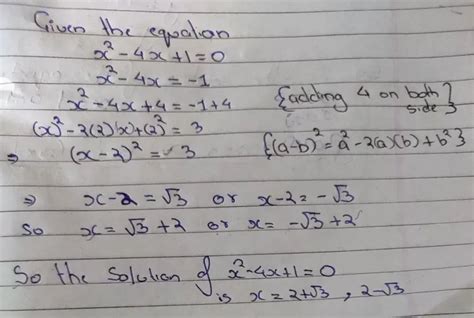 Given the equation
x² - 4x + 1 = 0
x² - 4x = -1
x² - 4x + 4 = -1 + 4 {adding 4 on both side}
(x)² - 2(2)(x) + (2)² = 3
⇒ (x - 2)² = 3 {(a-b)² = a² - 2(a)(b) + b²}
⇒ x - 2 = √3 or x - 2 = -√3
So x = √3 + 2 or x = -√3 + 2
So the Solution of x² - 4x + 1 = 0
is x = 2+√3 , 2-√3